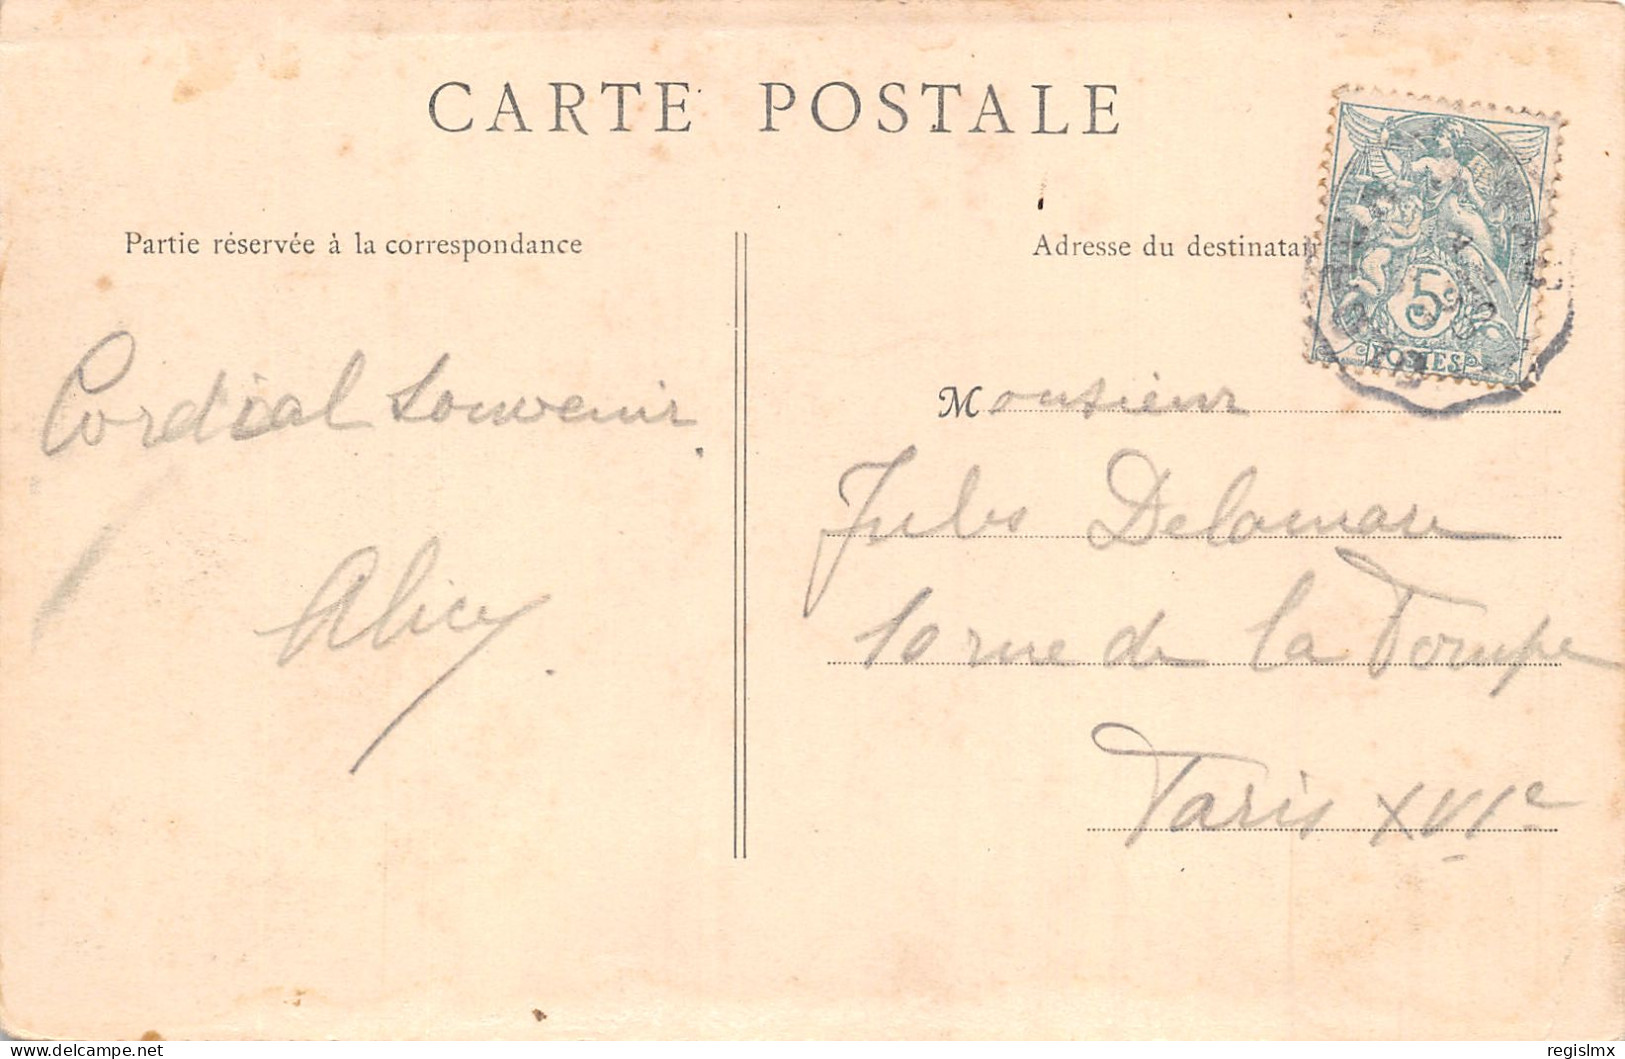 CARTE POSTALE
Partie réservée à la correspondance
Cordial Souvenir
Alice
Adresse du destinatair
5
POSTES
Monsieur
Jules Delamare
10 rue de la Pompe
Paris XVIe
delcampe.net
regislmx